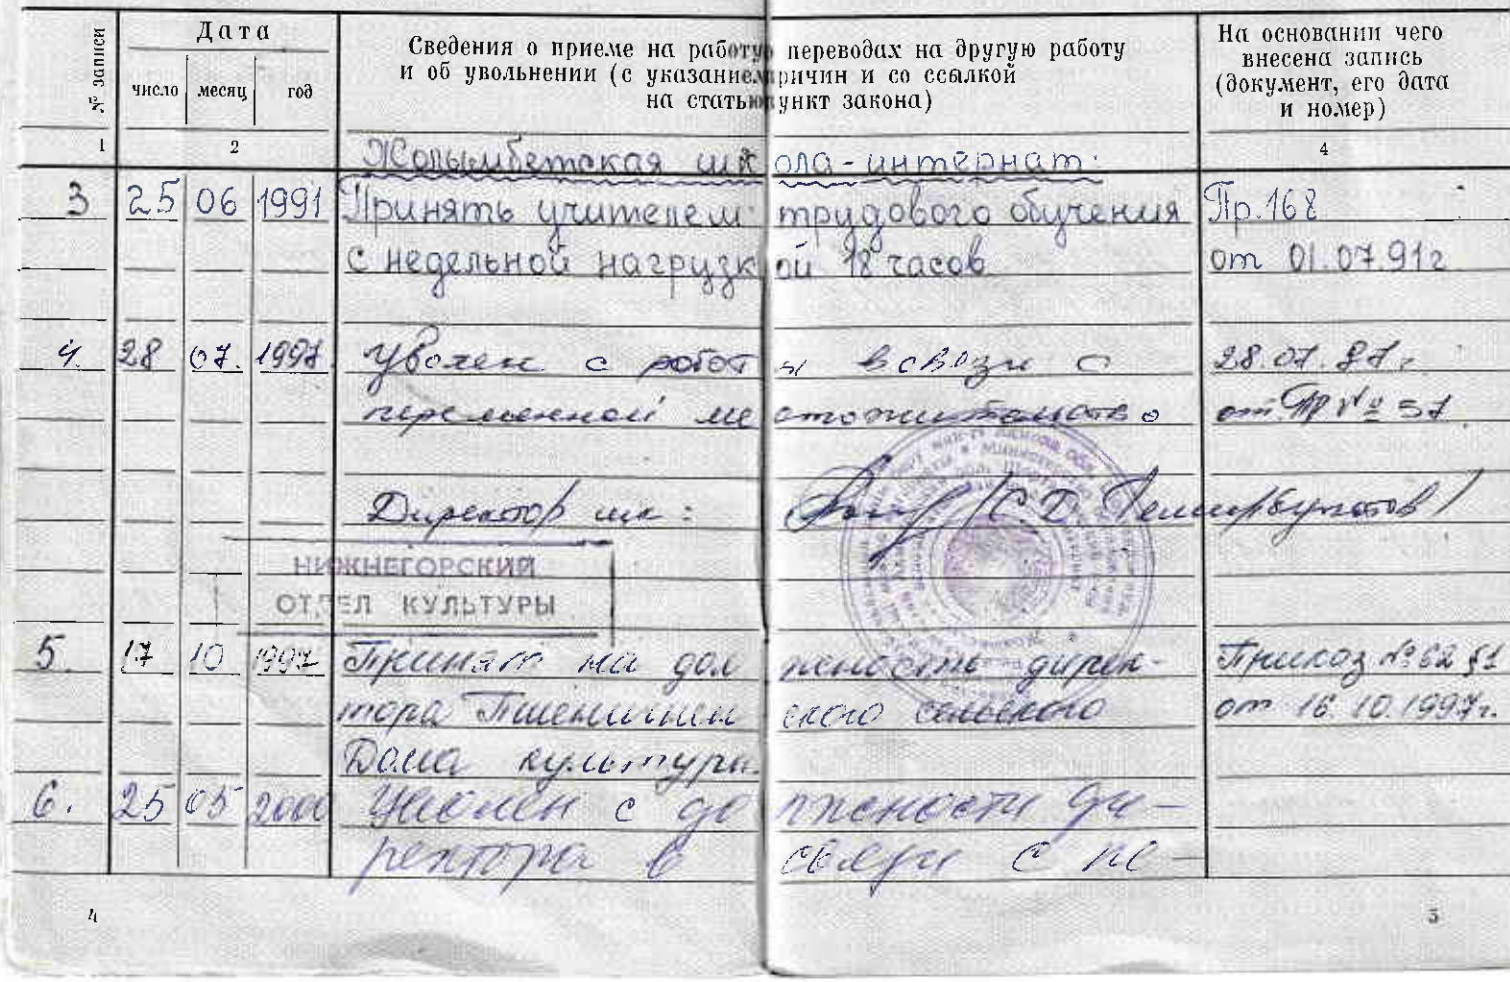 № записи
Дата
число месяц год
Сведения о приеме на работу, переводах на другую работу
и об увольнении (с указанием причин и со ссылкой
на статью, пункт закона)
На основании чего
внесена запись
(документ, его дата
и номер)
1 2 4
Жолымбетская школа-интернат.
3 25 06 1991 Принять учителем трудового обучения Пр. 168
с недельной нагрузкой 18 часов от 01.07.91г
4. 28 07. 1997. Уволен с работы в связи с 28.07.97г.
переменной местожительство от Пр № 57
Директор шк:
НИЖНЕГОРСКИЙ
ОТДЕЛ КУЛЬТУРЫ
5. 17 10 1997 Принят на должность дирек- Приказ № 62 §1
тора Пшеничненского сельского от 16.10.1997г.
Дома культуры.
6. 25 05 2000 Уволен с должности ди-
ректора в связи с пе-
4 5